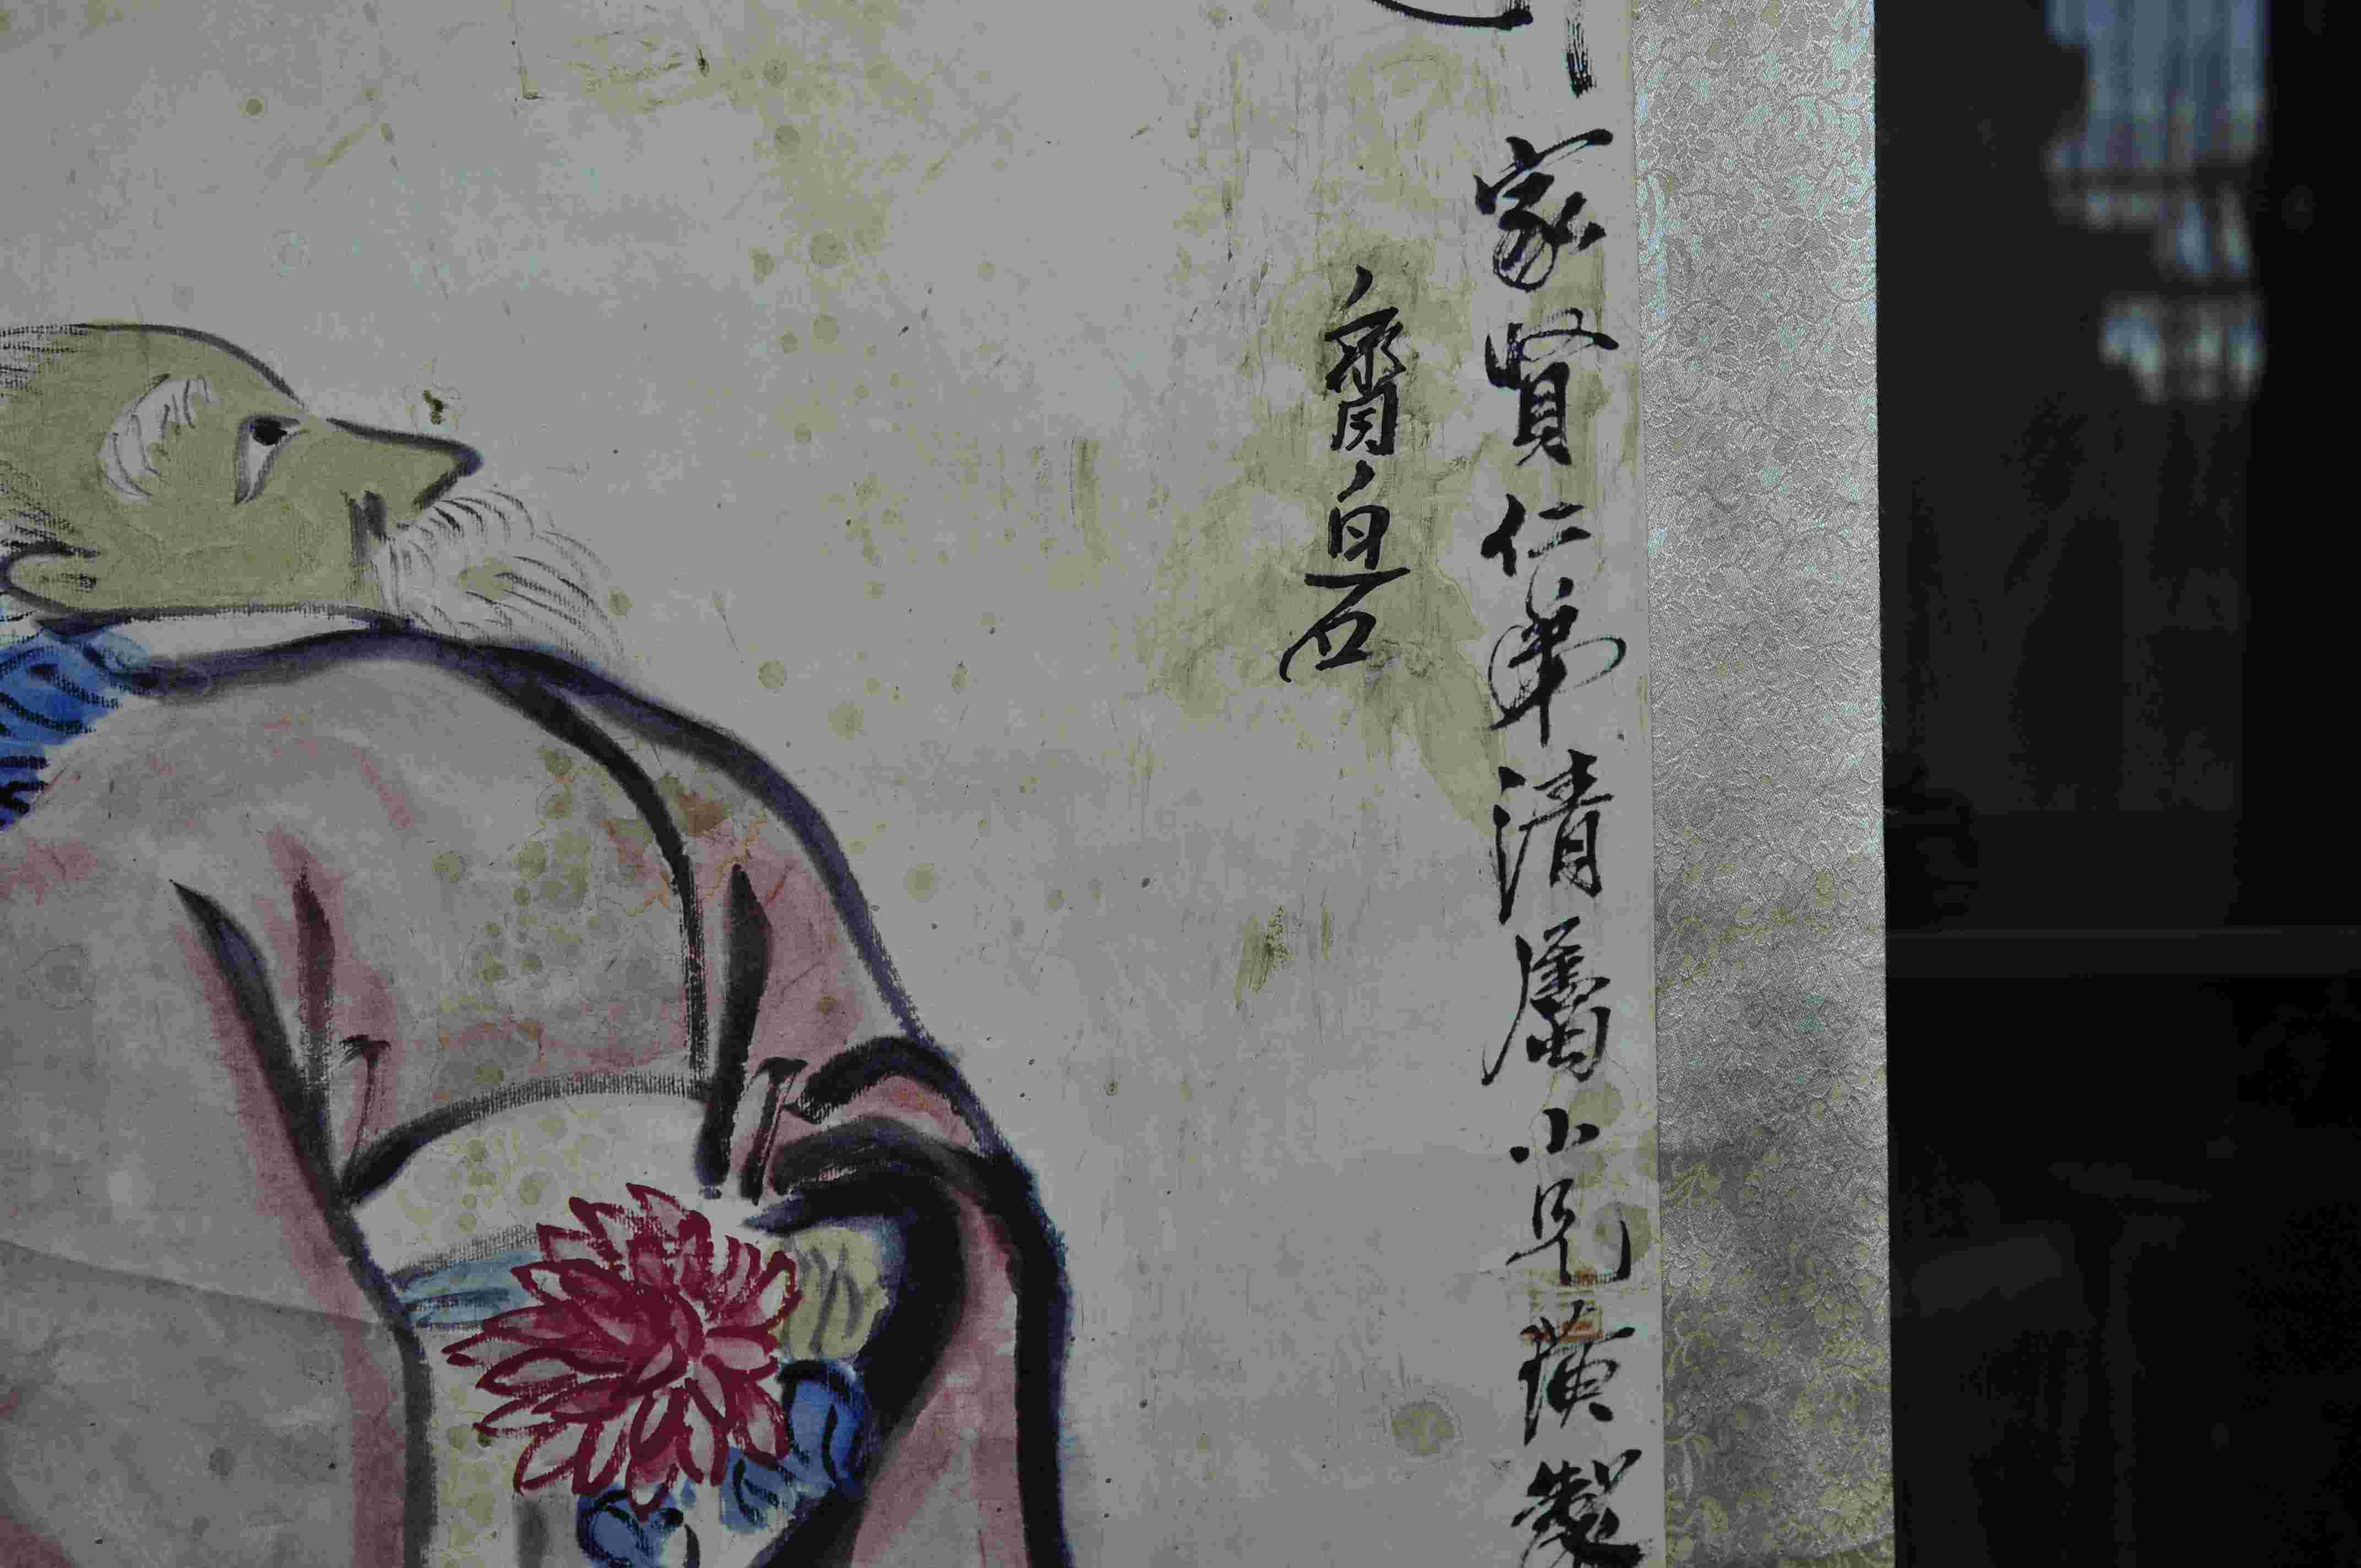 家賢仁弟清屬小兄璜製
齊白石